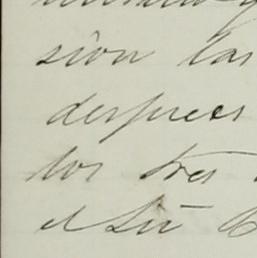 sion las
despues
los tres
el Sr